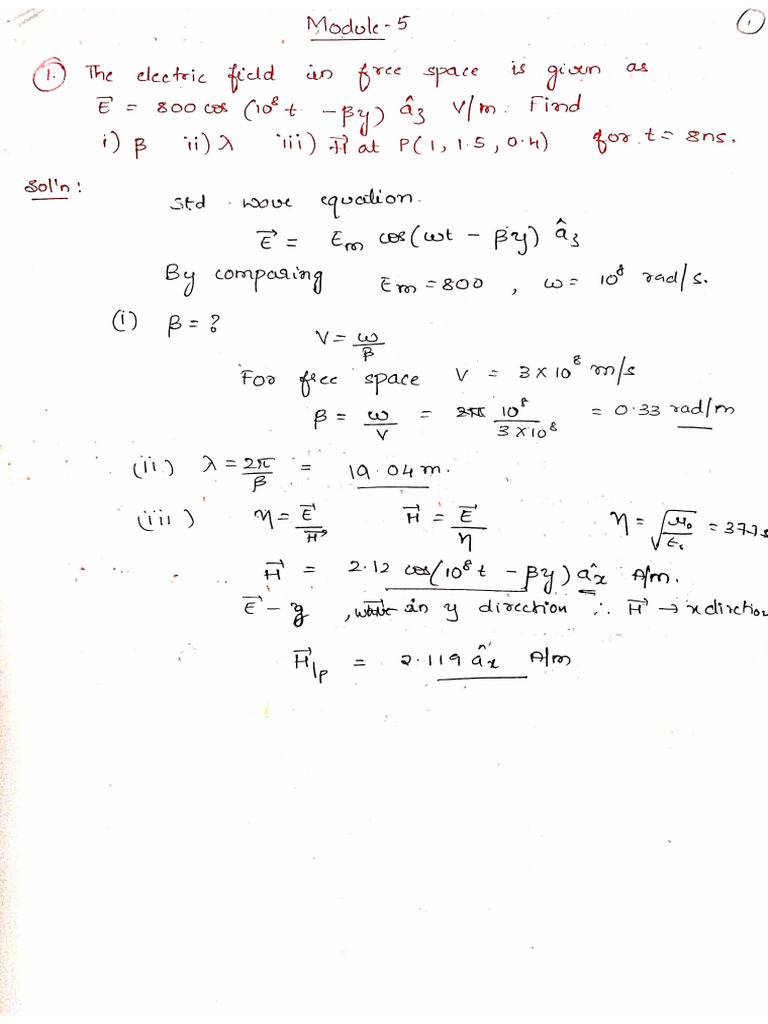 Module-5
1
1. The electric field in free space is given as
E⃗ = 800 cos (10⁸t - βy) â₃ V/m. Find
i) β ii) λ iii) H⃗ at P(1, 1.5, 0.4) for t = 8ns.
Sol'n:
Std wave equation.
E⃗ = Eₘ cos(ωt - βy) â₃
By comparing Eₘ = 800, ω = 10⁸ rad/s.
(i) β = ?
V = ω/β
For free space V = 3 × 10⁸ m/s
β = ω/V = 10⁸/3×10⁸ = 0.33 rad/m
(ii) λ = 2π/β = 19.04 m.
(iii) η = E⃗/H⃗ H⃗ = E⃗/η η = √μ₀/ε₀ = 377Ω
H⃗ = 2.12 cos(10⁸t - βy) âₓ A/m.
E⃗ - z, wave in y direction ∴ H⃗ → x dirction
H⃗|ₚ = 2.119 âₓ A/m